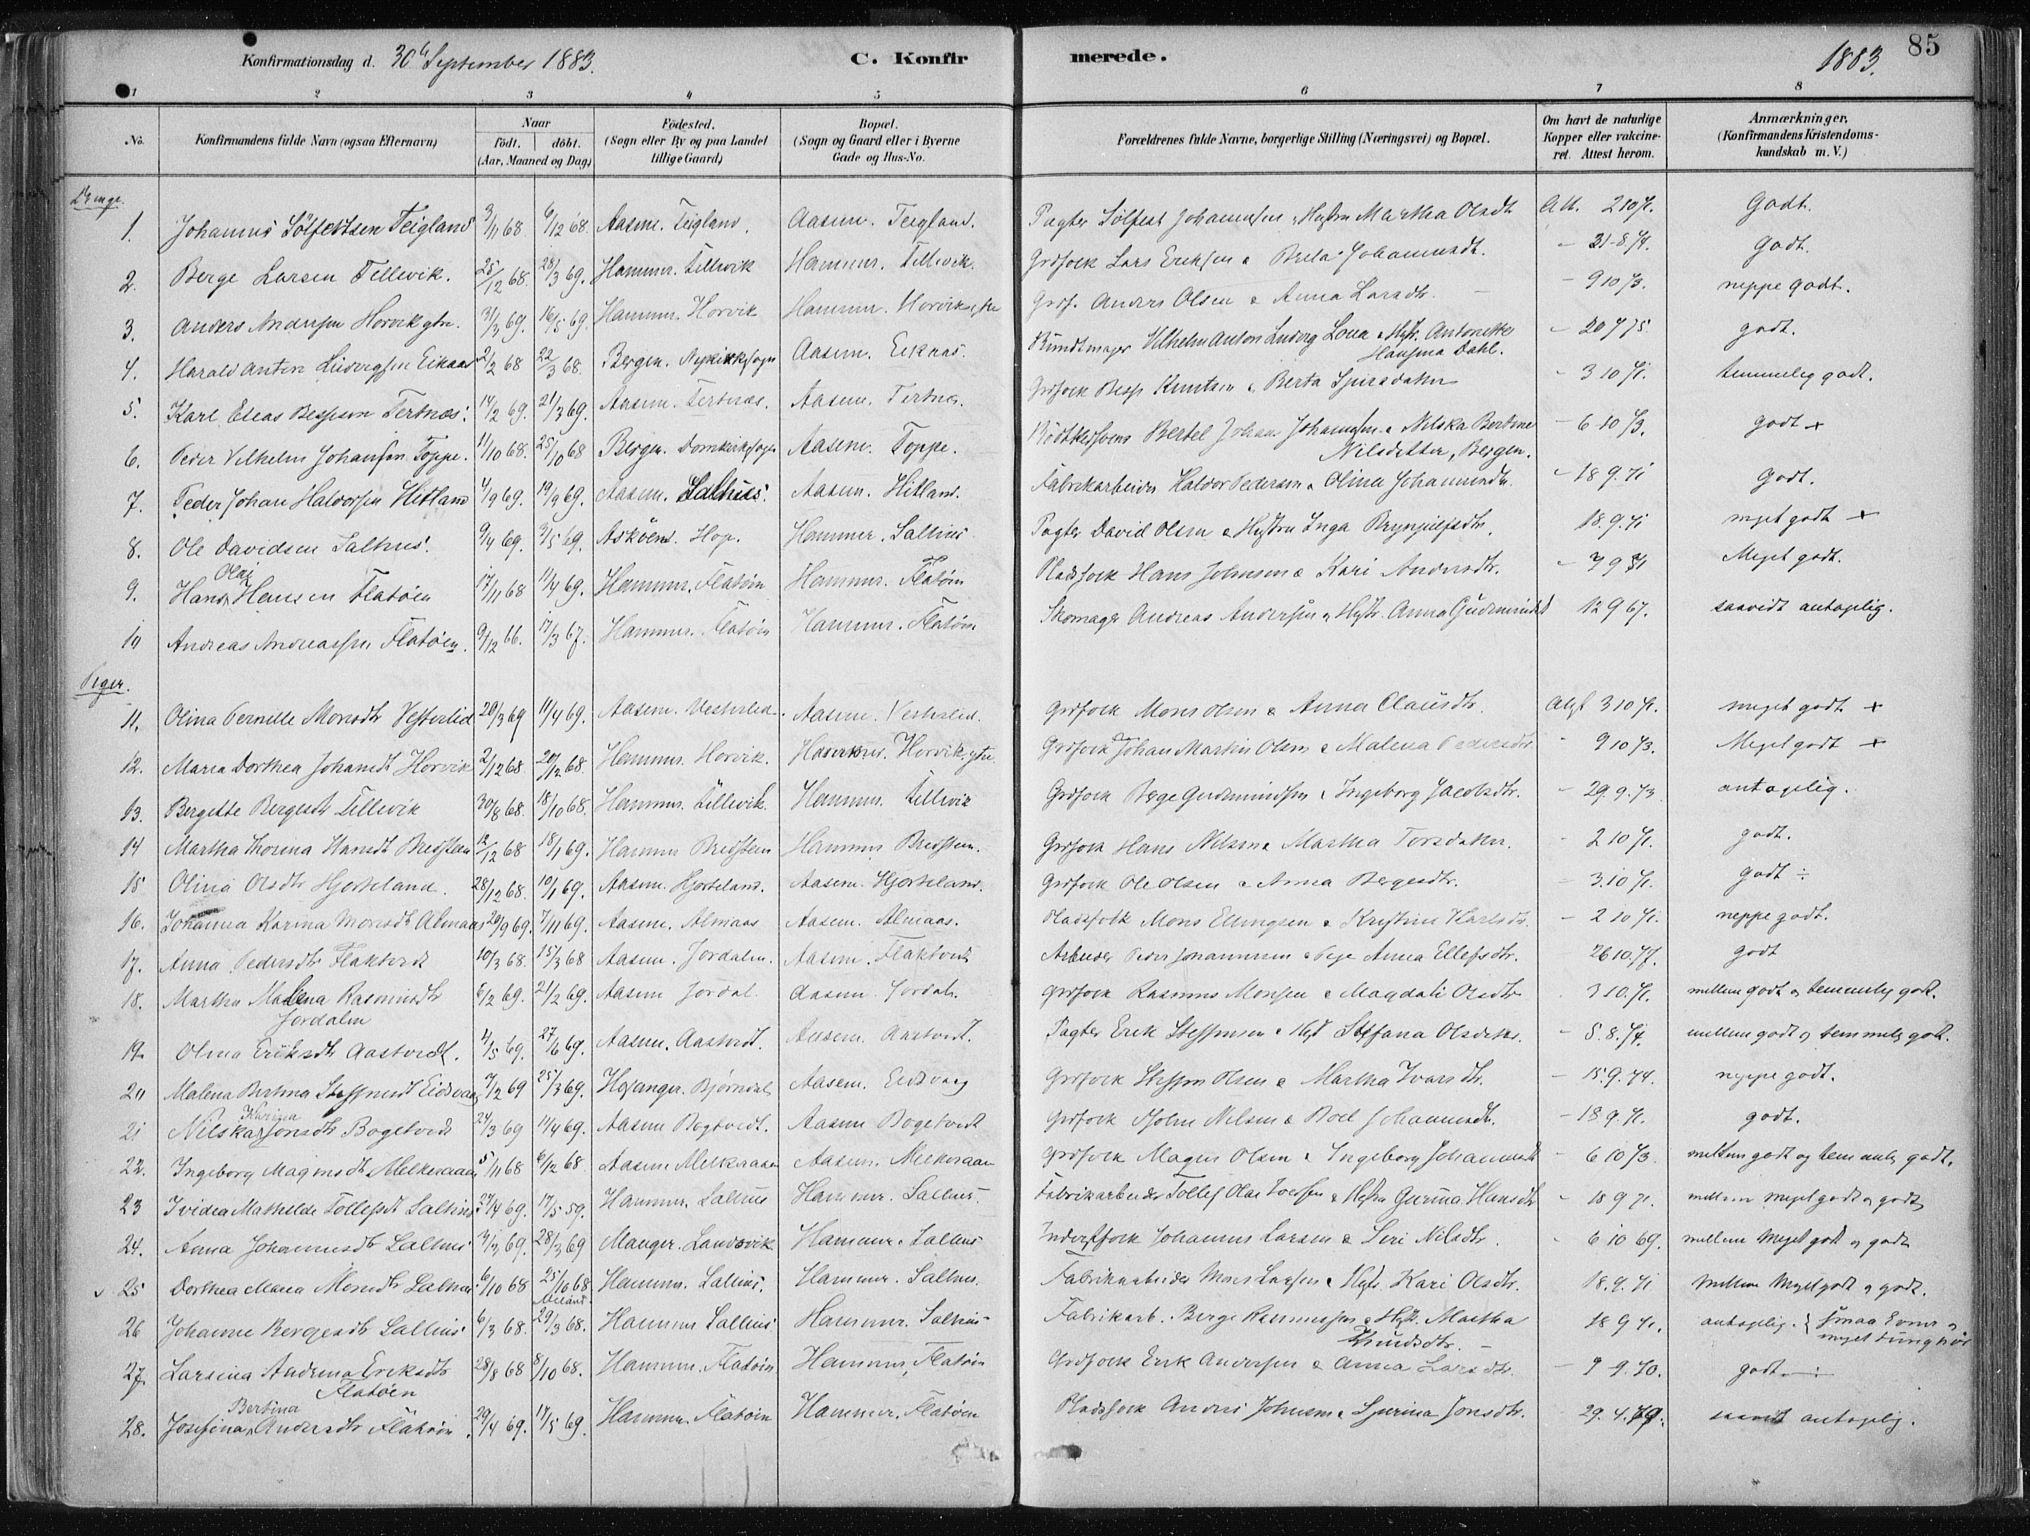 Konfirmationsdag d. 30te September 1883. C. Konfirmerede. 1883. 85
1 2 3 4 5 6 7 8
No. Konfirmandens fulde Navn (ogsaa Efternavn) Naar født. døbt. (Aar, Maaned og Dag) Födested. (Sogn eller By og paa Landet tillige Gaard) Bopæl. (Sogn og Gaard eller i Byerne Gade og Hus-No. Forældrenes fulde Navne, borgerlige Stilling (Næringsvei) og Bopæl. Om havt de naturlige Kopper eller vakcineret. Attest herom. Anmærkninger. (Konfirmandens Kristendomskundskab m. V.)
Drenge.
1. Johannes Sölfestsen Teigland 3/11 68 6/12 68. Aasene. Teigland. Aasene. Teigland. Pagter Sölfest Johannessen, Hustru Martha Olsdt Att. 2 10 71. Godt.
2. Berge Larsen Tellevik. 25/12 68. 28/3 69. Hammer. Tellevik Hammer. Tellevik. Grdfolk Lars Eriksen & Brita Johannesdt. - 31-8 74. Godt.
3. Anders Andersen Horvik ytre. 31/3 69. 16/5 69. Hammer. Horvik Hammer. Horvik ytre Grdf. Anders Olsen & Anna Larsdtr. - 9 10 73. neppe godt.
4. Harald Anton Ludvigsen Eikaas 2/2 68 22/3 68. Bergen. Nykirkesogn Aasene. Eiknæs. Bundtmager Vilhelm Anton Ludvig & Hustr. Antonette Hansina Dahl. - 20 4 75 godt.
5. Karl Elias Bessesen Tertnæs. 14/2 69. 21/3 69. Aasene. Tertnæs. Aasene. Tertnes. Grdfolk Besse Knutsen & Berta - 3 10 71. temmelig godt.
6. Peder Vilhelm Johansen Toppe. 11/10 68. 25/10 68 Bergen. Domkirkesogn Aasene. Toppe. Bödtkersvend Bertel Johan Johannessen & Nilska Bertine Nilsdatter, Bergen. - 6 10 73. godt +
7. Peder Johan Haldorsen Hitland 4/9 69. 19/9 69. Aasene. Salhus. Aasene. Hitland. Fabrikarbeider Haldor Pedersen & Olina Johannesdtr. - 18 9. 71 Godt.
8. Ole Davidsen Salhus. 9/4 69. 3/5 69. Asköens. Hop. Hammer. Salhus Pagter David Olsen & Hustru Inga Brynjulfsdtr. 18. 9. 71 meget godt +
9. Hans Olaj Hansen Flatöen 17/11 68 11/4 69. Hammer. Flatöen Hammer. Flatöen Pladsfolk Hans Johnsen & Kari Andersdtr. - 7 9 71 Meget godt.
10 Andreas Andreassen Flatöen. 9/12 66. 17/3 67. Hammer. Flatöen Hammer. Flatöen Skomager Andreas Andersen & Hustr. Anna Gudmundsd 12 9 67. saavidt antagelig.
Piger.
11. Olina Pernille Monsdtr Vesterlid 20/3 69 11/4 69. Aasene. Vesterlid. Aasene. Vesterlid. Grdfolk Mons Olsen & Anna Clausdtr. Att 3 10 71. meget godt +
12. Maria Dorthea Johansdt Horvik 2/12 68. 20/12 68. Hammer. Horvik. Hammer. Horvik ytre. Grdfolk Johan Martin Olsen & Malena Pedersdtr. - 9 10 73. Meget godt +
13. Bergette Bergesdt Tellevik 30/8 68. 18/10 68. Hammer. Tellevik. Hammer. Tellevik Grdfolk Berge Gudmundsen & Ingeborg Jacobsdtr. - 29. 9. 73 antagelig.
14 Martha Thorina Hansdt Bredsteen 12/12 68 18/1 69. Hammer Bredsteen Hammer Bredsteen. Grdfolk Hans Nilsen & Martha Torsdatter. - 2 10 71. godt.
15 Olina Olsdtr Hjorteland. 28/12 68. 10/1 69. Aasene. Hjorteland. Aasene. Hjorteland. Grdfolk Ole Olsen & Anna Bergesdtr. - 3. 10 71. godt ÷
16. Johanna Karina Monsdt Almaas 20/9 69. 7/11 69. Aasene. Almaas Aasene. Almaas. Pladsfolk Mons Ellingsen & Kristine Karlsdtr. - 2 10 71. neppe godt.
17. Anna Pedersdtr Flaktvedt 10/3 68. 15/3 68 Aasene. Jordalen. Aasene. Flaktvedt Arbeider Peder Johannesen & Pige Anna Ellefsdtr. - 26 10. 77. godt
18. Martha Malena Rasmusdtr Jordalen 6/2 69. 21/2 69. Aasene Jordal. Aasene. Jordaln. Grdfolk Rasmus Monsen & Magdali Olsdtr 3 10. 71. mellem godt og temmelig godt.
19. Olina Eriksdtr Aastvedt. 4/5 69. 27/6 69. Aasene. Aastvedt. Aasene. Aastvedt. Pagter Erik Steffensen & Hust Steffana Olsdatter. - 5. 8. 74. mellem godt og temmelig godt.
20 Malena Bertina Steffensdt Eidsvaag 7/2 69 25/3 69. Hosanger. Bjørndal Aasene. Eidsvaag Grdfolk Steffen Olsen & Martha Ivarsdtr. - 15. 9. 74. neppe godt.
21 Nilska Karina Jonsdtr Bogetvedt 24/3 69 11/4 69. Aasene Bogtvedt. Aasene Bogetvedt Grdfolk John Nilsen & Boel Johannesdtr. - 18 9. 71. godt.
22. Ingeborg Magnesdt Melkeraaen 5/11 68 6/12 68. Aasene Melkeraaen Aasene. Melkeraaen Grdfolk Magne Olsen & Ingeborg Johannesdt - 6 10 73. mellem godt og temmelig godt.
23 Ividea Mathilde Tollefsdt Salhus 27/4 69. 17/5 59. Hammer. Salhus Hammer. Salhus. Fabrikarbeider Tollef Olai & Hustru Gurina Hansdtr - 18 9 71. mellem meget godt og godt
24. Anna Johannesdtr Salhus 28/3 69 Manger. Landsvik Hammer. Salhus Inderstfolk Johannes Larsen & Siri Nilsdtr. - 6 10 69. mellem meget godt og godt
25 Dorthea Maria Monsdtr Salhus 6/10 68 25/10 68 Hammer. Salhus. Hammer. Salhus. Fabrikarbeider Mons Larsen & Hustr. Kari Olsdtr. 18. 9. 71 mellem meget godt og godt.
26 Johanne Bergesdtr Salhus 6/3 68. 29/3 68. Hammer Salhus Hammer. Salhus Fabrikarb. Berge Rasmussen & Hustr. Martha Knudsdtr. 18 9 71. antagelig. { smaa Evner og meget tunghør
27. Larsina Andrina Eriksdtr Flatöen 28/8 68 8/10 68. Hammer. Flatöen Hammer. Flatöen Grdfolk Erik Andersen & Anna Larsdtr. - 9 9. 70. godt ÷
28. Josefina Bertina Andersdtr Flatöen. 29/4 69. 17/5 69. Hammer. Flatöen Hammer. Flatöen Pladsfolk Anders Johnsen & Gurina Jonsdtr. - 29. 4. 79. saavidt antagelig.